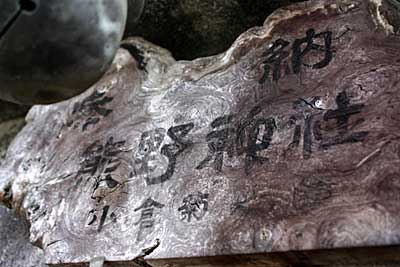 奉納
熊野神社
小倉